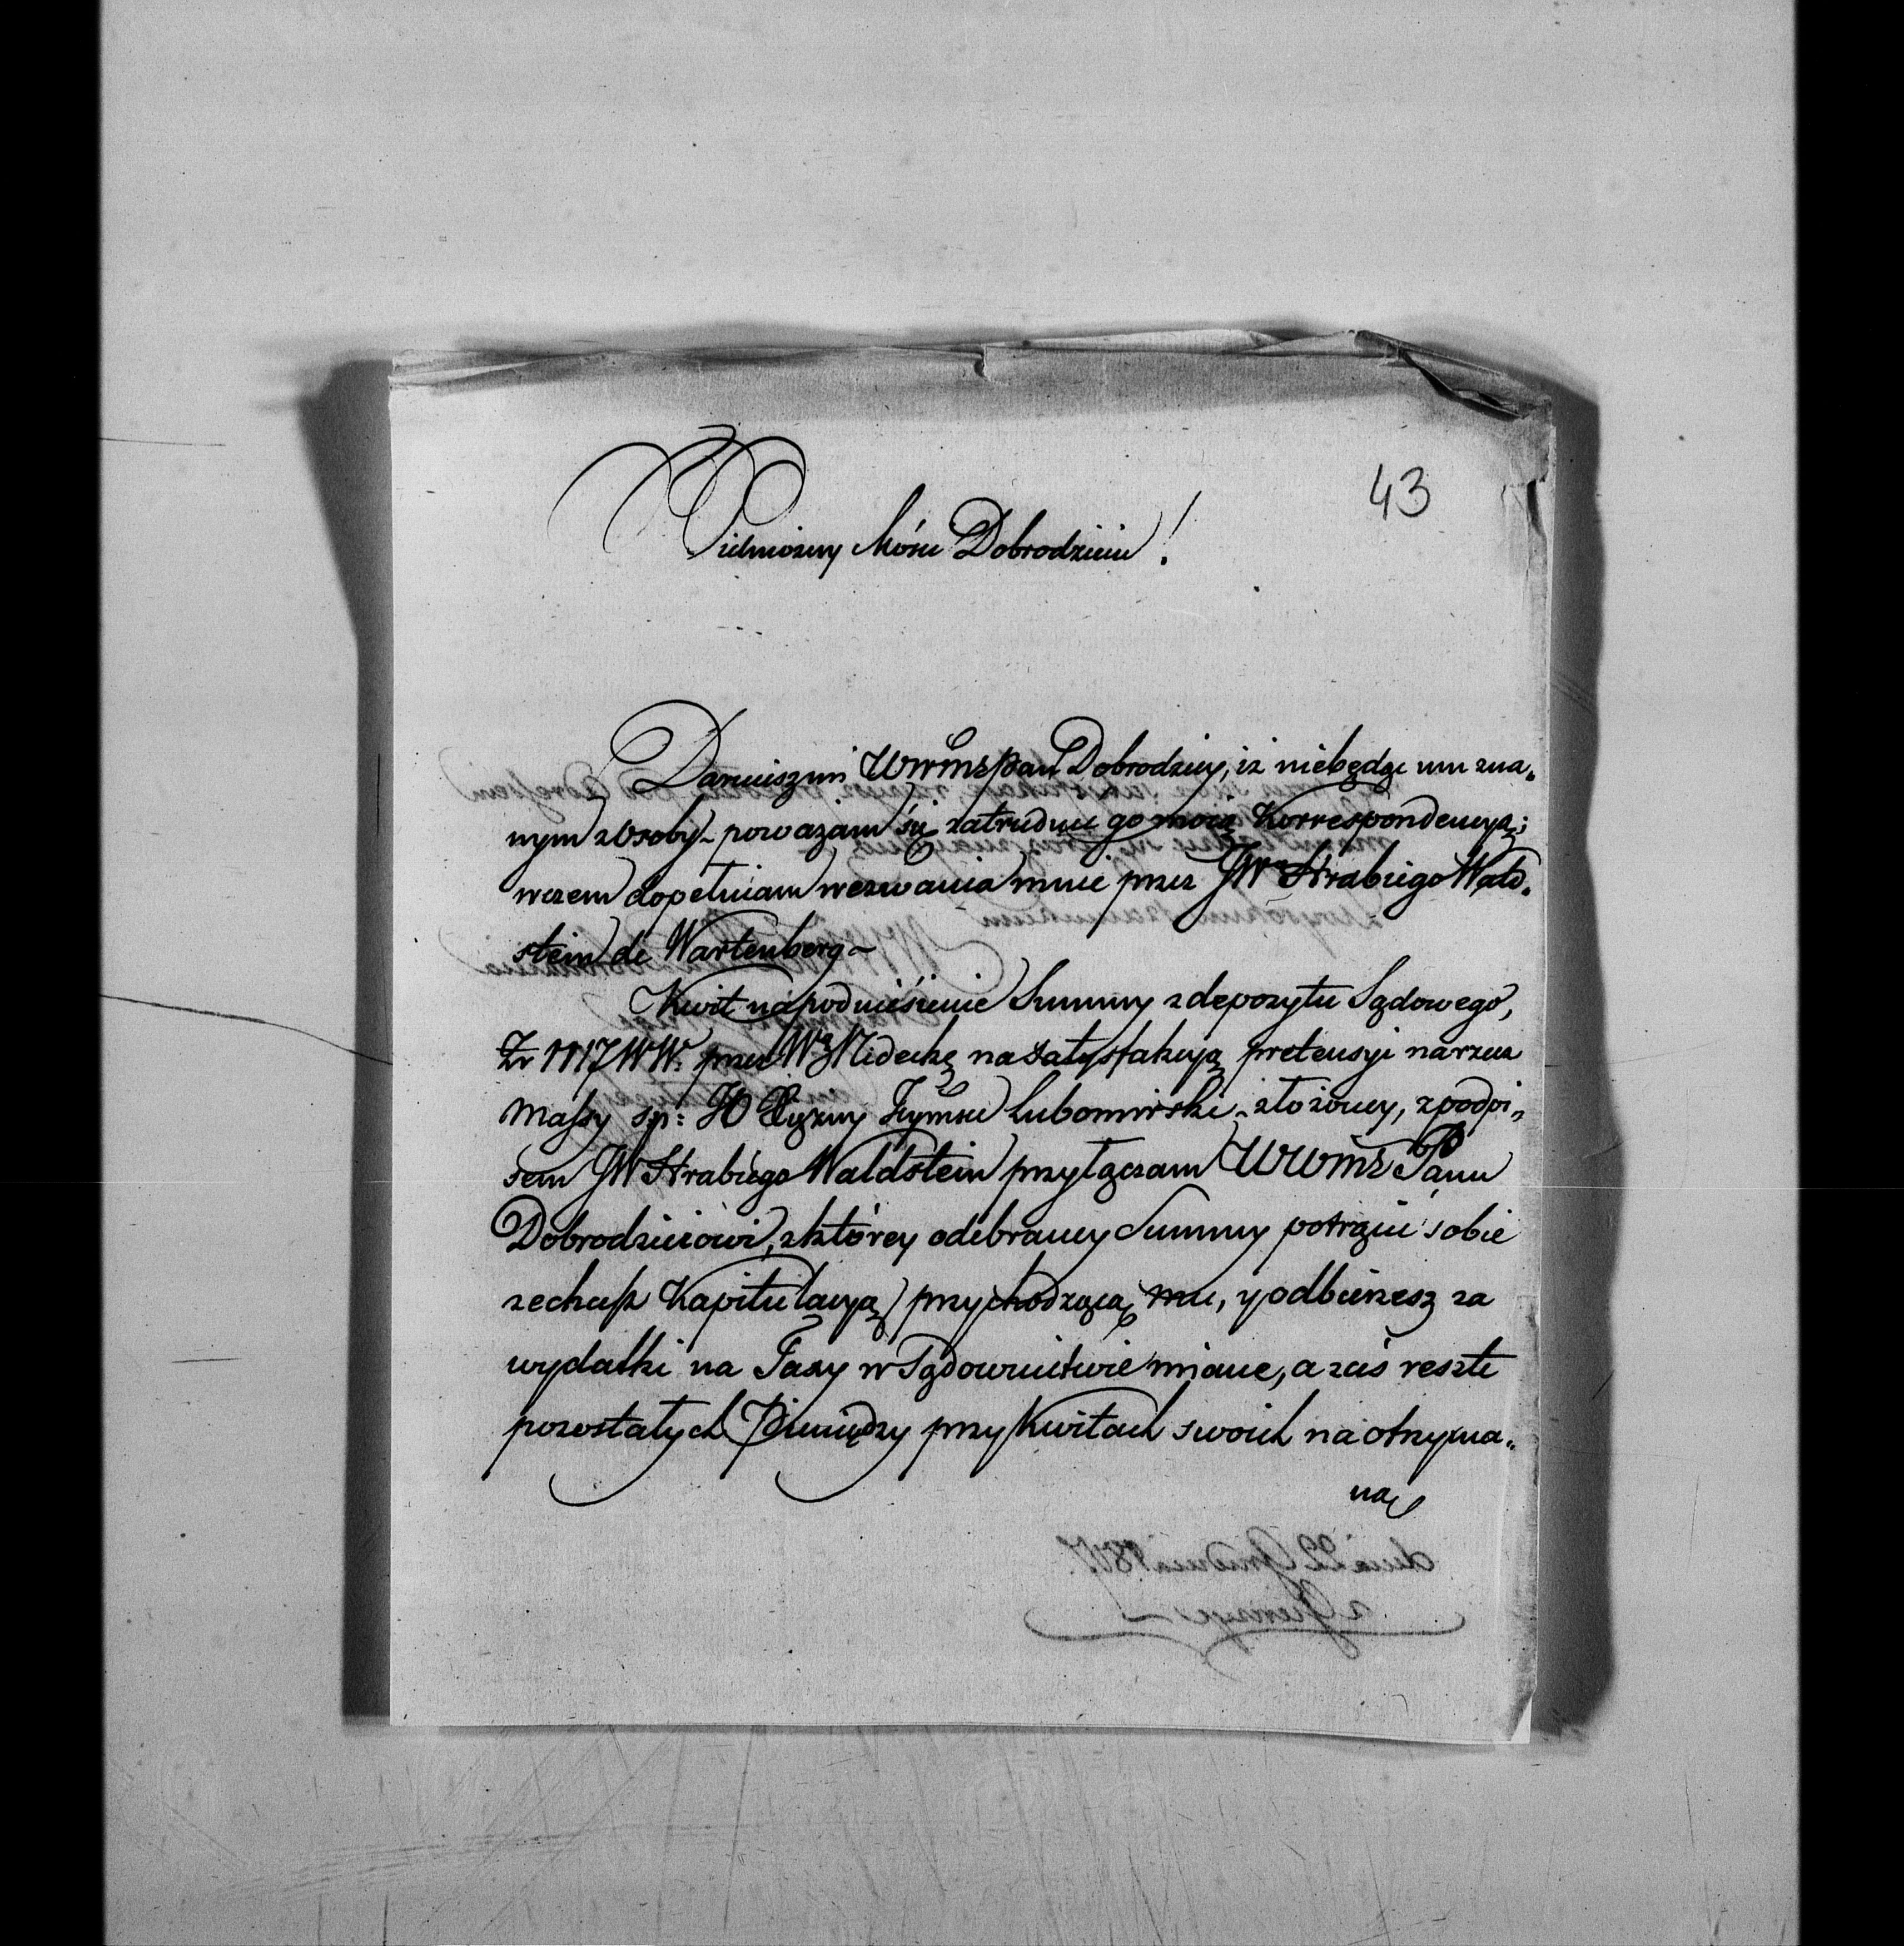 43
Wielmożny Mości Dobrodzieiu!
Daruiesz mi WWmsPan Dobrodziey, iż niebędąc mu zna„
nym z Osoby – poważam się zatrudnić go moią Korrespondencyą;
wczem dopełniam wezwania mnie przez JWo Hrabiego Wald„
stein de Wartenberg –
Kwit na podniesienie Summy z depozytu Sądowego,
Zr 1117 WW. przez Wą Midecką na satysfakcyą pretensyi narzecz
Massy sp: JO Xiężny Lubomirski – złożoney, z podpi„
sem JW Hrabiego Waldstein przyłączam WWms Panu
Dobrodzieiowi, z którey odebraney Summy potrącić sobie
zechcesz Kapitulacyą przychodzącą mu, y odbierzesz za
wydatki na Taxy w Sądownictwie miane, a zaś resztę
pozostałych Pieniędzy przy Kwitach swoich na otrzyma„
ną